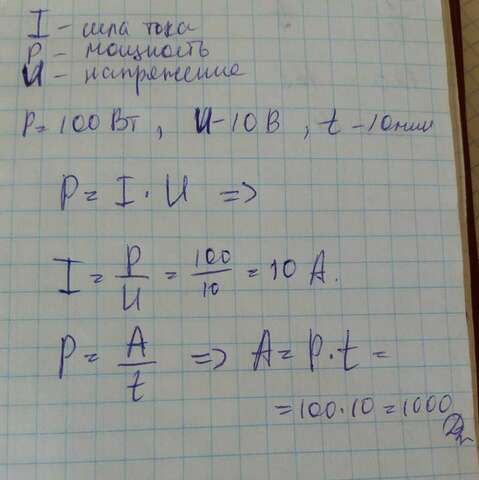 I - сила тока
P - мощность
U - напряжение
P = 100 Вт, U - 10 В, t - 10 мин
P = I · U =>
I = P/U = 100/10 = 10 А.
P = A/t => A = P · t =
= 100 · 10 = 1000
Дж